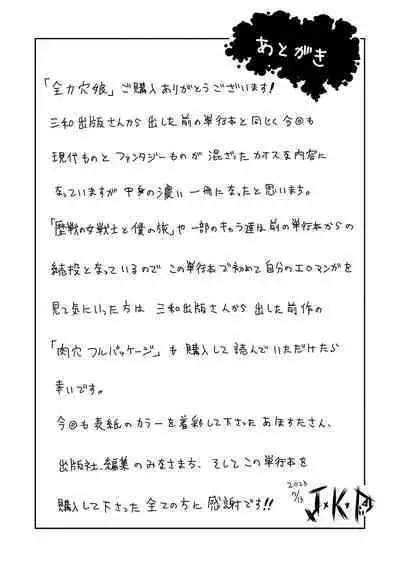 あとがき
「全力穴娘」ご購入ありがとうございます!
三和出版さんから出した前の単行本と同じく今回も
現代ものとファンタジーものが混ざったカオスな内容に
なっていますが中身の濃い一冊になったと思います。
「歴戦の女戦士と僕の旅」や一部のキャラ達は前の単行本からの
続投となっているのでこの単行本で初めて自分のエロマンガを
見て気にいった方は 三和出版さんから出した前作の
「肉穴フルパッケージ」も購入して読んでいただけたら
幸いです。
今回も表紙のカラーを着彩して下さったあほすたさん、
出版社、編集のみなさまち、そしてこの単行本を
購入して下さった全ての方に感謝です!!
2023
J.K.P